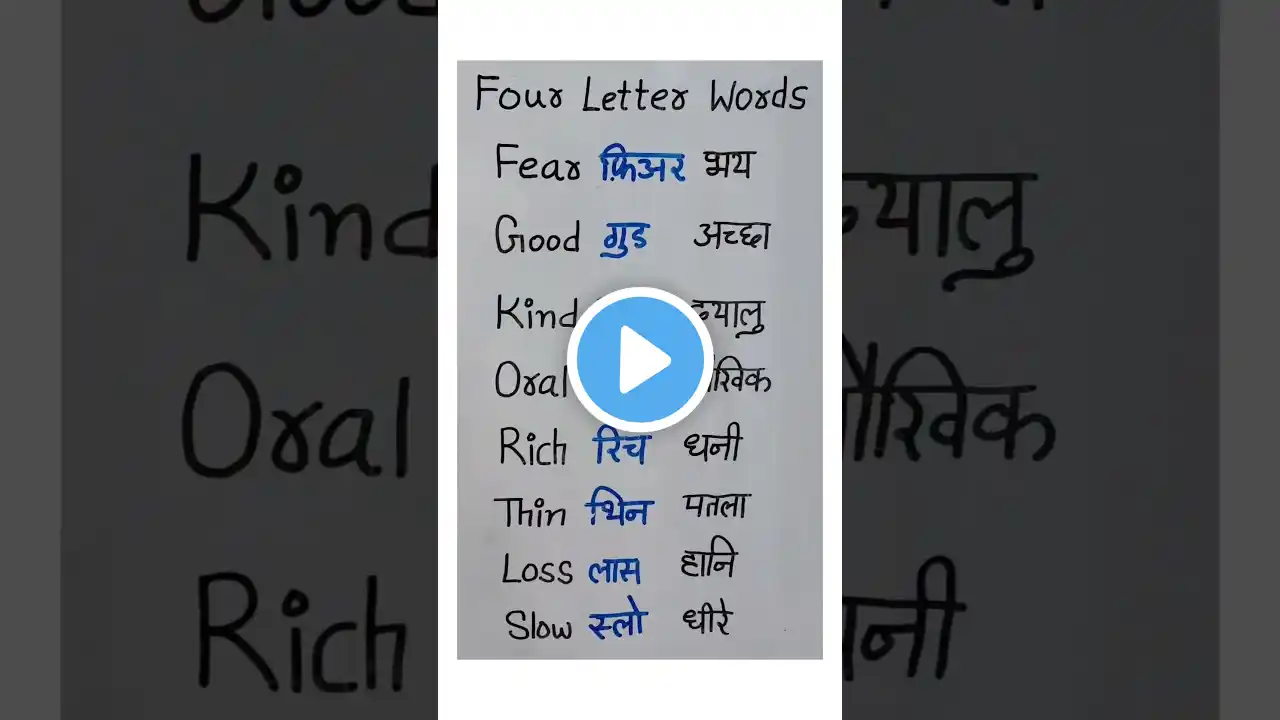 Four Letter Words
Fear फ़िअर भय
Good गुड अच्छा
Kind दयालु
Oral
Rich रिच धनी
Thin थिन पतला
Loss लास हानि
Slow स्लो धीरे